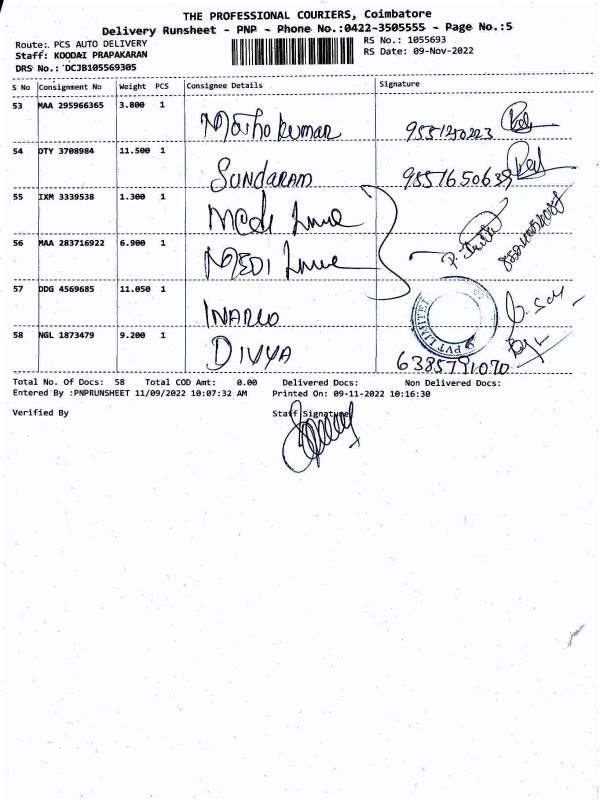 THE PROFESSIONAL COURIERS, Coimbatore
Delivery Runsheet - PNP - Phone No.:0422-3505555 - Page No.:5
Route:. PCS AUTO DELIVERY RS No.: 1055693
Staff: KOODAI PRAPAKARAN RS Date: 09-Nov-2022
DRS No.: DCJB105569305
S No Consignment No Weight PCS Consignee Details Signature
53 MAA 295966365 3.800 1
54 DTY 3708984 11.500 1
SUNDARAM 9551650639
55 IXM 3339538 1.300 1
56 MAA 283716922 6.900 1
MEDI
57 DDG 4569685 11.050 1
PVT LIMITED
58 NGL 1873479 9.200 1
DIVYA 6385791070
Total No. Of Docs: 58 Total COD Amt: 0.00 Delivered Docs: Non Delivered Docs:
Entered By :PNPRUNSHEET 11/09/2022 10:07:32 AM Printed On: 09-11-2022 10:16:30
Verified By Staff Signature